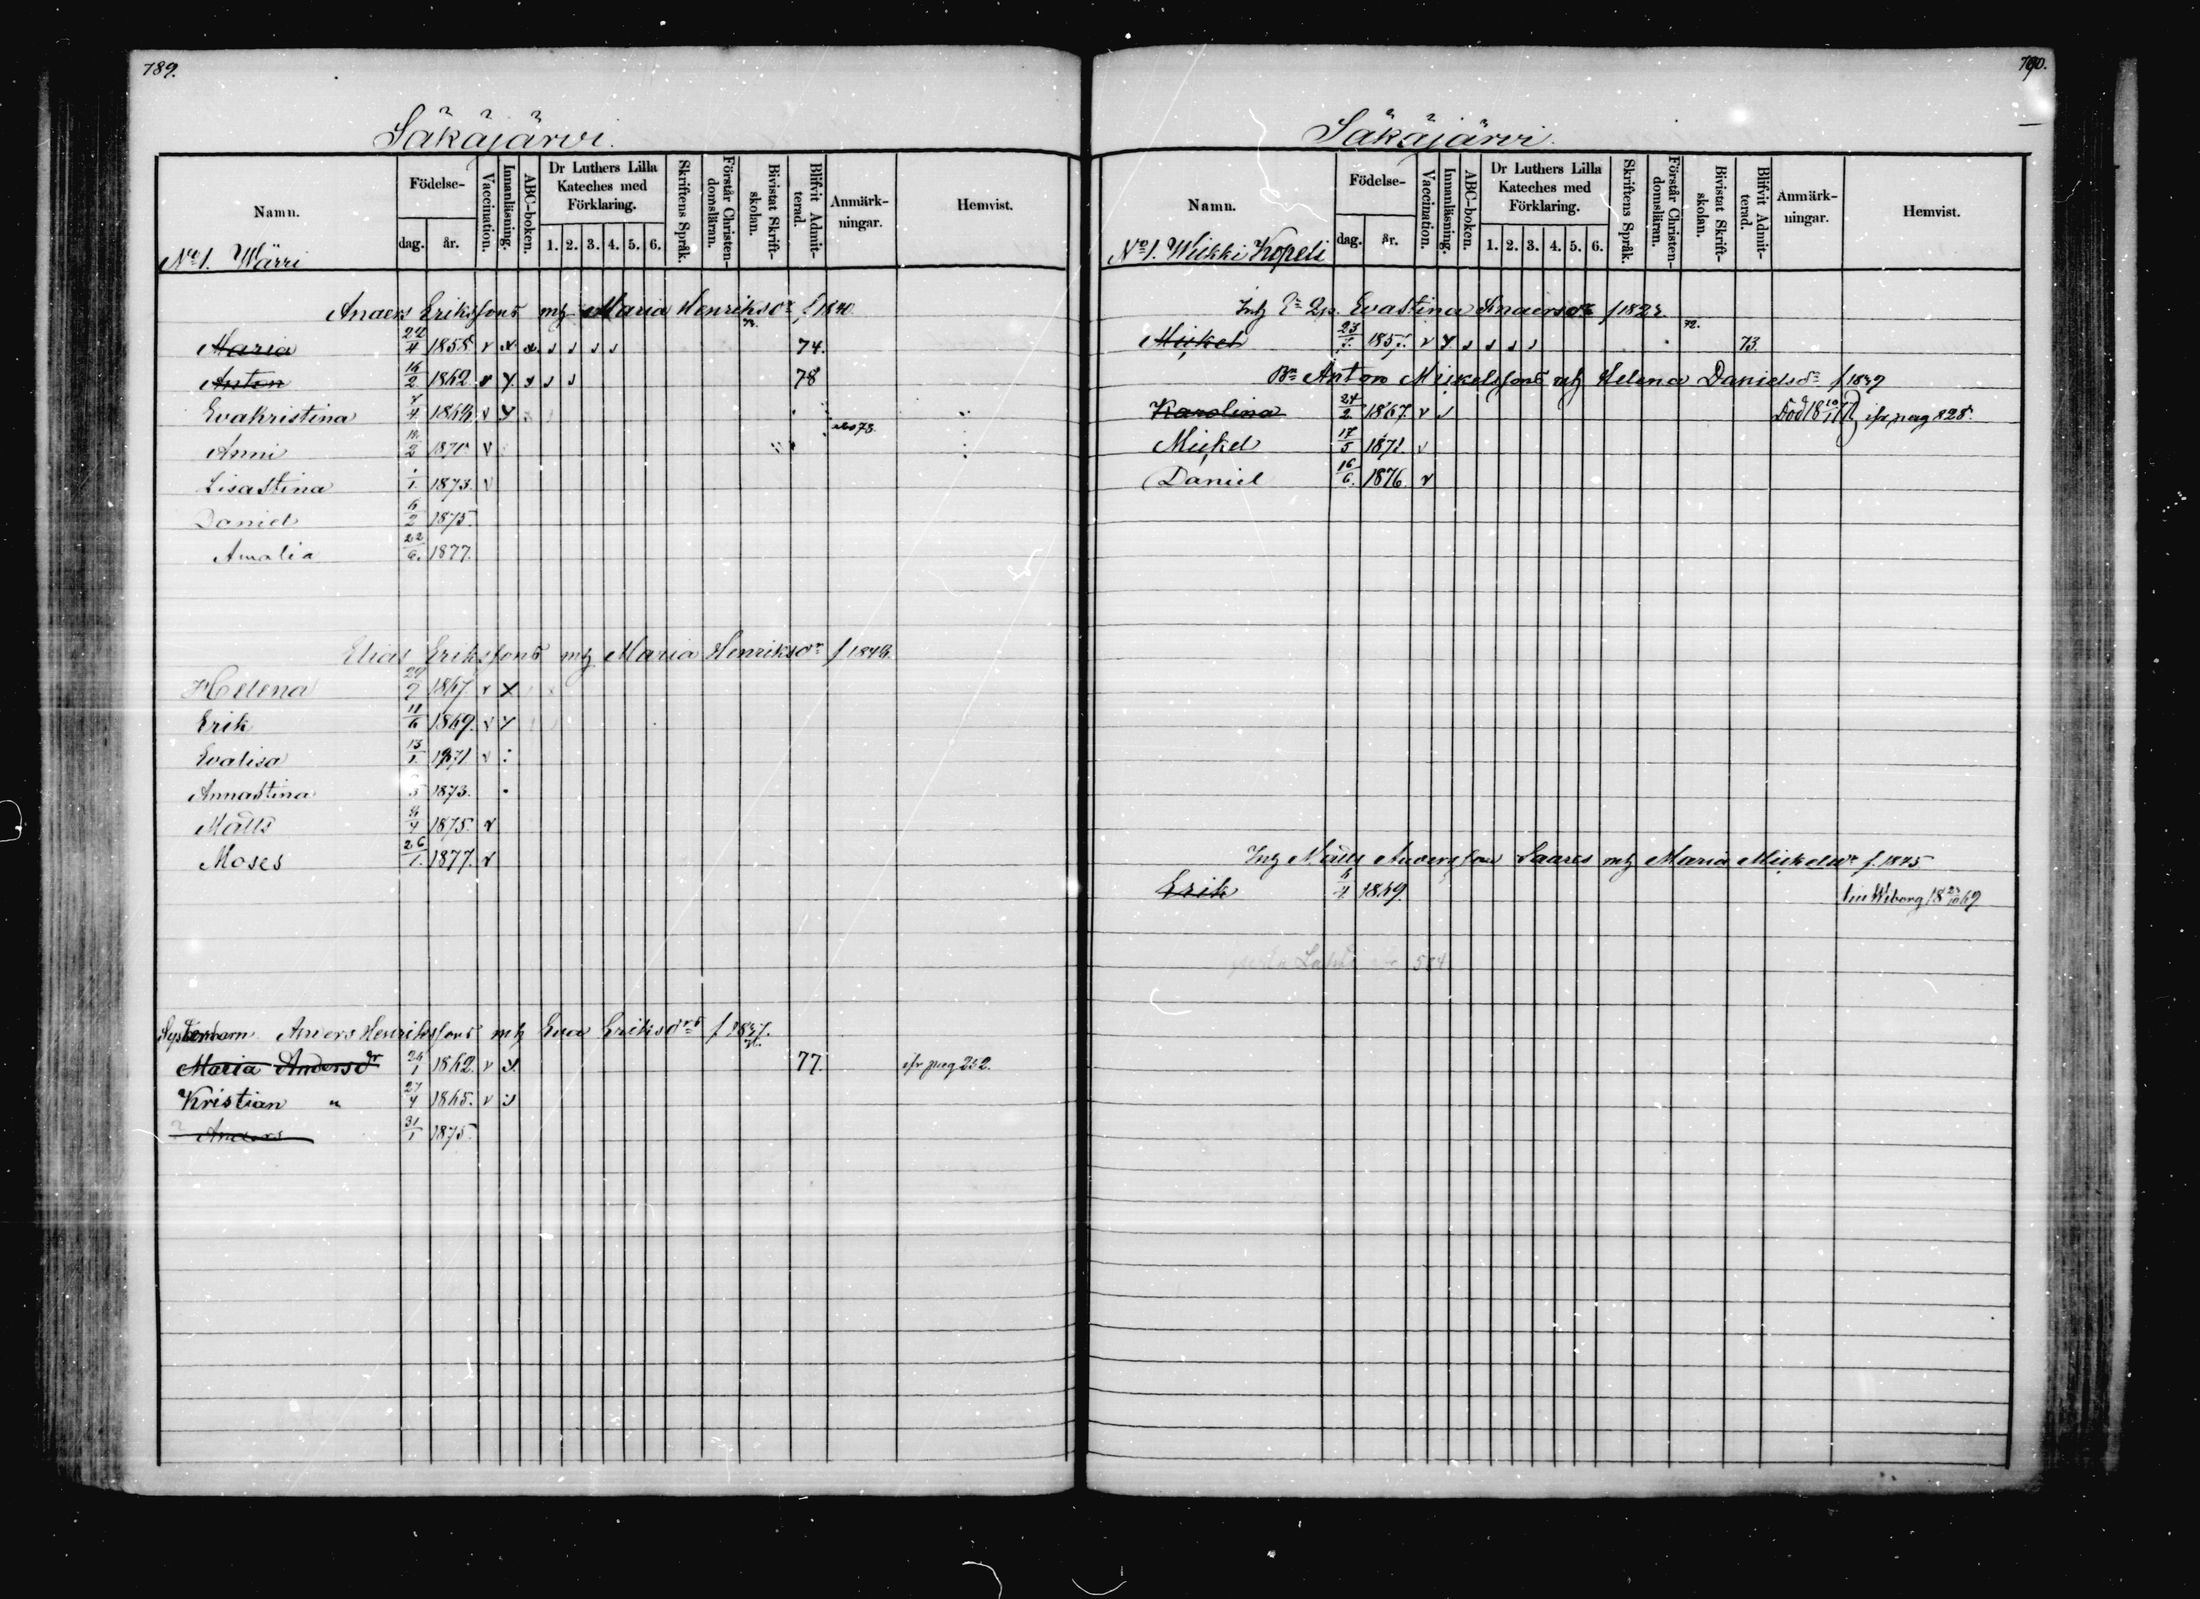 789.
Säkäjärvi.
Namn.
Födelse-
dag.
år.
Vaccination.
Innanläsning.
ABC-boken.
Dr Luthers Lilla
Kateches med
Förklaring.
1. 2. 3. 4. 5. 6.
Skriftens Språk.
Förstår Christen-
domsläran.
Bivistat Skrift-
skolan.
Blifvit Admit-
terad.
Anmärk-
ningar.
Hemvist.
No 1. Wärri
Anders Erikssons mh Maria Henriksdr f 1840
Maria 4 1858 v x x 74.
Anton 16/2 1862 78
Evakristina v
Anni 2 v
Lisastina 1 1873. v
Daniel 6/2 1875.
Amalia 22/6. 1877.
Elias Erikssons mh Maria Henriksdr
Helena 1867 v x
Erik 11/6 1869. v
Evalisa 13/1 1871 v
Annastina 1873.
Matts 1875. v
Moses 26/1. 1877. v
Systerbarn Anders Henrikssons mh Eva Eriksdrs
Maria Andersdr 1 1862. v 77. cfr pag 252.
Kristian " 27/4 1865. v
Anders 31/1 1875.
790.
Säkäjärvi.
Namn.
Födelse-
dag.
år.
Vaccination.
Innanläsning.
ABC-boken.
Dr Luthers Lilla
Kateches med
Förklaring.
1. 2. 3. 4. 5. 6.
Skriftens Språk.
Förstår Christen-
domsläran.
Bivistat Skrift-
skolan.
Blifvit Admit-
terad.
Anmärk-
ningar.
Hemvist.
No 1. Wikki Kopeli
Evastina Andersdr
Mickel 23 v 72. 73.
Anton Mickelssons mh Helena Danielsdr f 1839
Karolina 24/2 1867. v Död cfr pag 828.
Mickel 17/5 v
Daniel 16/6. 1876 v
Inh Matts Andersson Saares mh Maria Mickelsdr f. 1845
Erik 6/4 1869. Wiborg